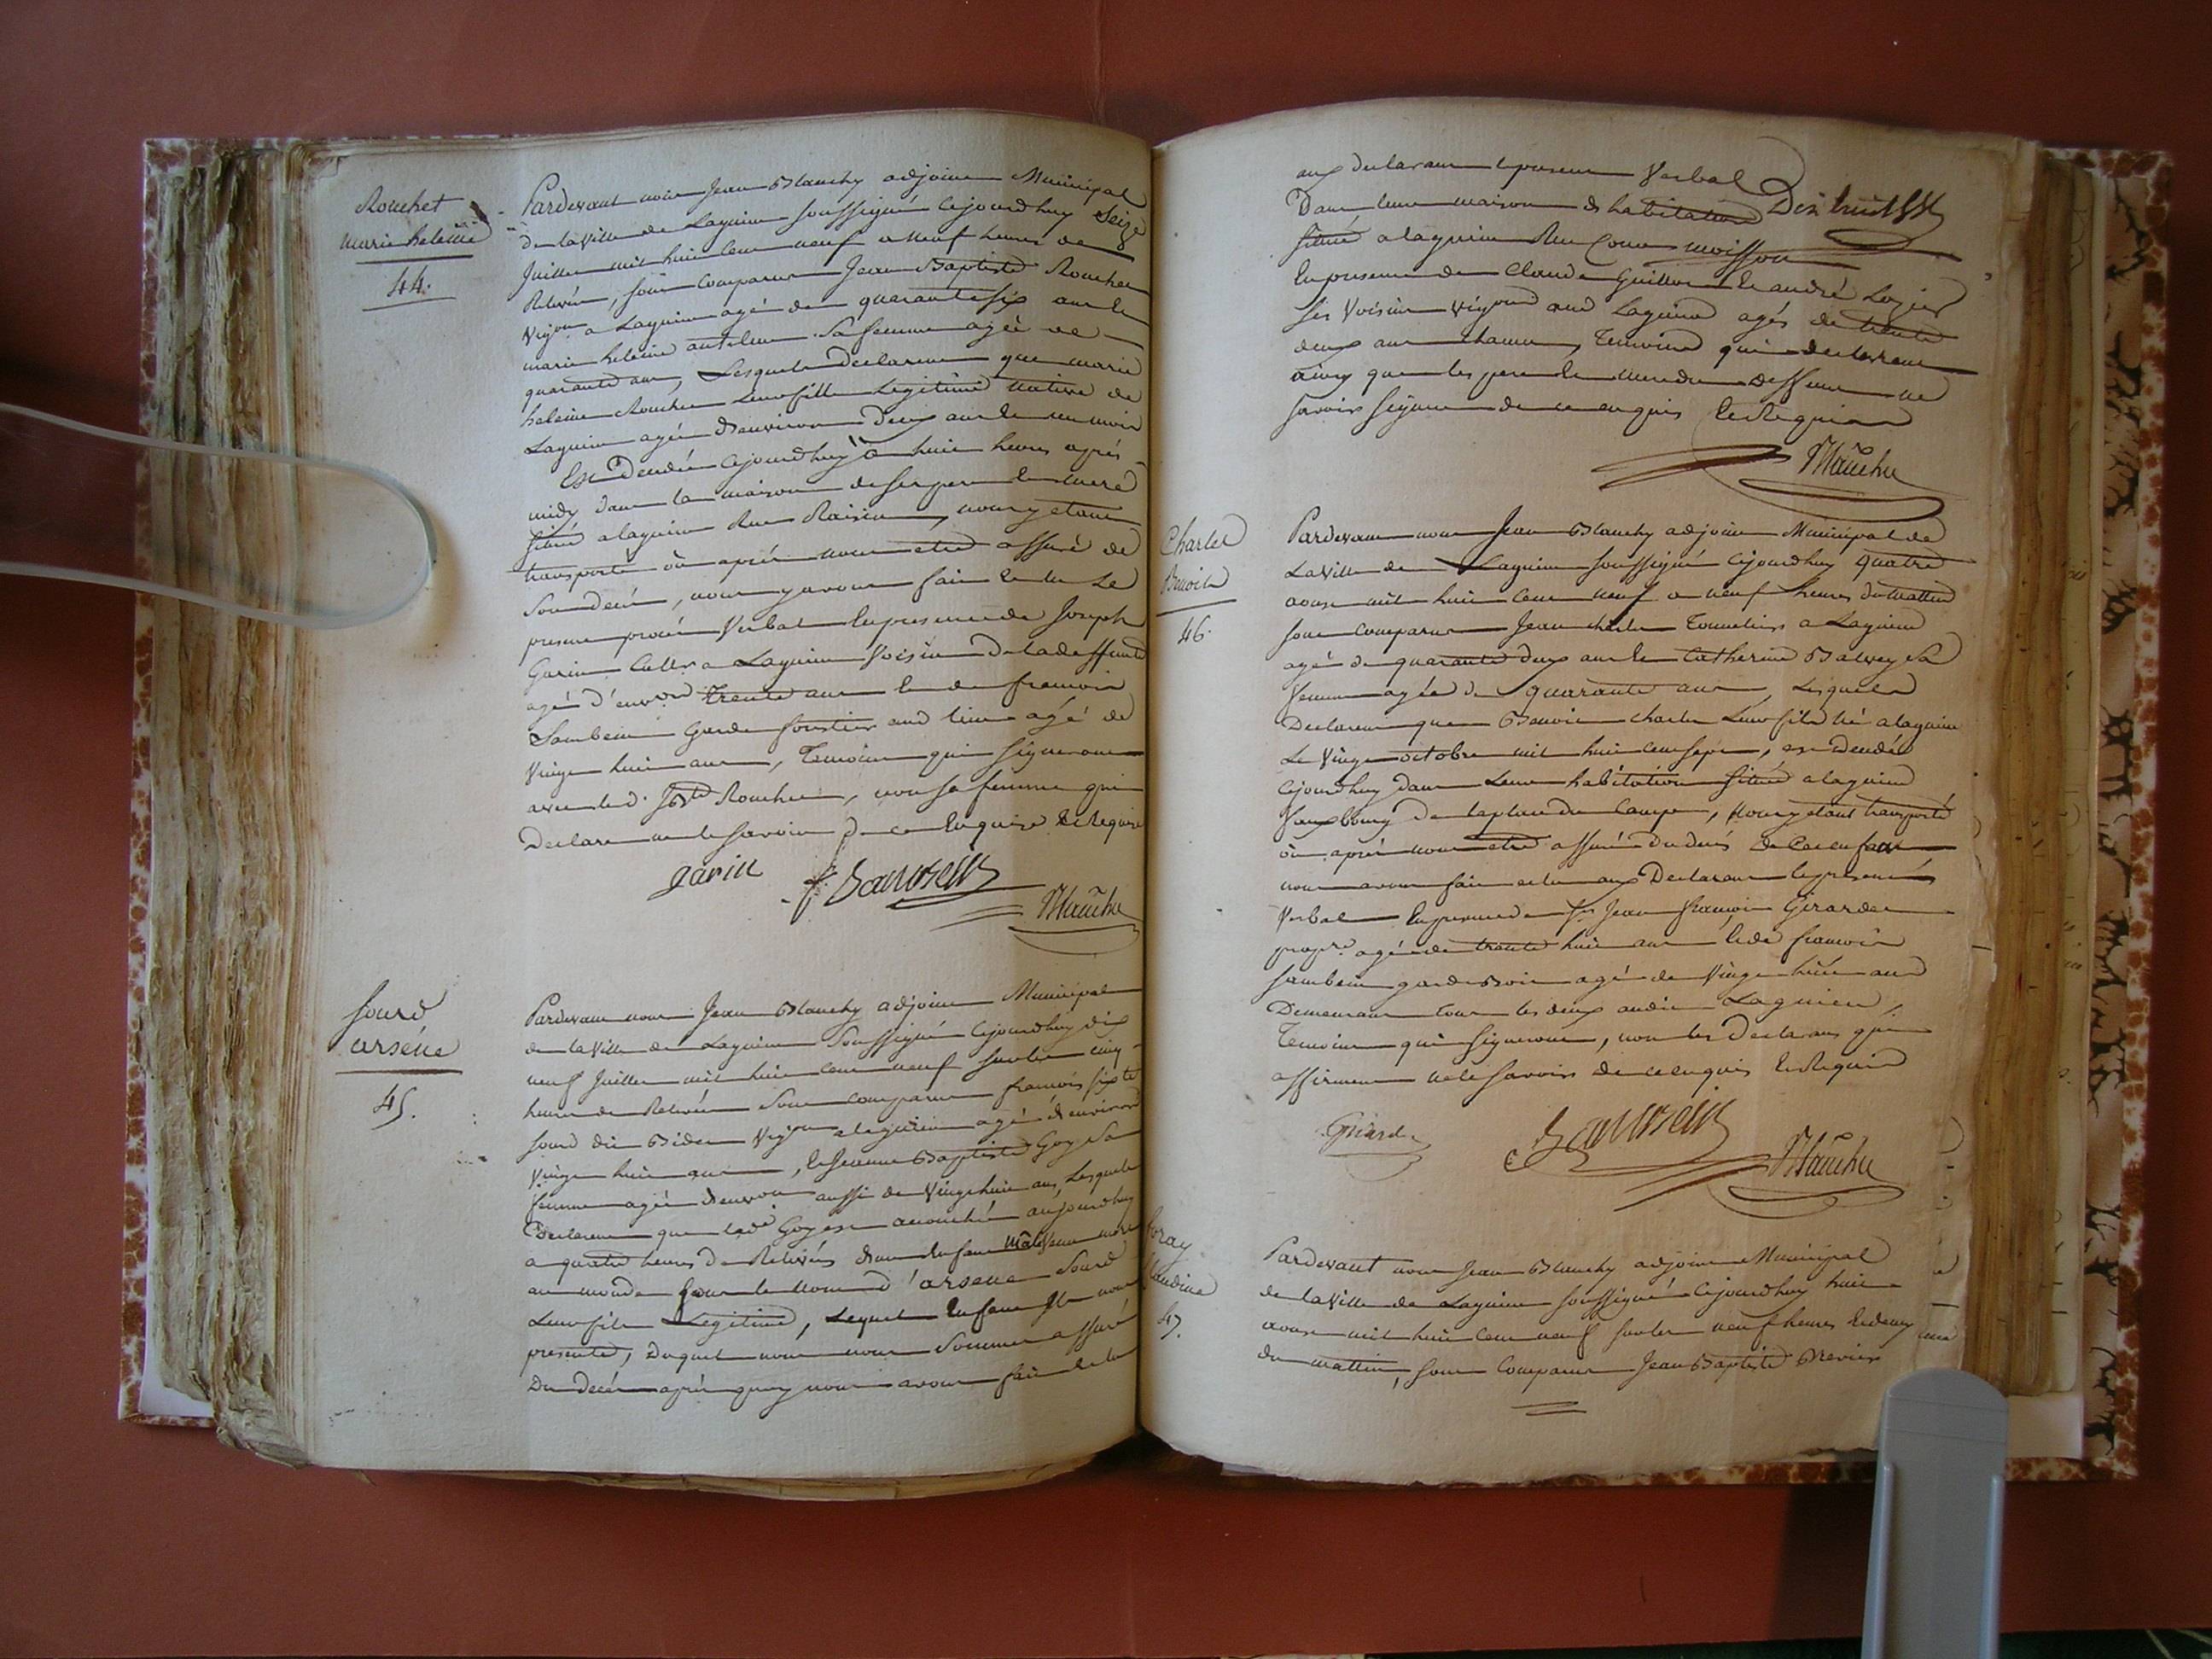 Rouchet
marie heleine
44.
Pardevant nous Jean Blanchy adjoint Municipal
de la Ville de Lagnieu soussigné cejourdhuy Seize
Juillet mil huit cent neuf a neuf heures de
Relevée, sont comparus Jean Baptiste Rouchet
Vign.on a Lagnieu agé de quarante six ans et
marie heleine sa femme agée de
quarante ans, Lesquels Declarent que marie
heleine Rouchet Leur fille Legitime native de
Lagnieu agée d'environ Deux ans et un mois
Est Decedée cejourdhuy a huit heures après
midy dans la maison de ses pere et mere
située a lagnieu Rue Raisin, nous y etant
transporté où après nous etre assuré de
Son decés, nous y avons fait et lu Le
present procés Verbal En presence de Joseph
Garin Cult.r a Lagnieu Voisin De la deffunte
agé d'environ Trente ans et de francois
Sambein Garde forestier aud lieu agé de
Vingt huit ans, Temoins qui signeront
avec led. J B.te Rouchet, non sa femme qui
Declare ne le savoir de ce Enquise Et Requise
garin f. Sambein Blanchy
Sourd
arséne
45.
Pardevant nous Jean Blanchy adjoint Municipal
de la Ville de Lagnieu Soussigné Cejourdhuy dix
neuf Juillet mil huit cent neuf sur les cinq
heures de Relevée Sont comparus francois sixte
Sourd dit Bidet Vign.on a lagnieu agé d'environ
Vingt huit ans, et Jeanne Baptiste Goy Sa
femme agée d'environ aussi de Vingt huit ans, Lesquels
Declarent que lad.e Goy est accouchée aujourdhuy
a quatre heures de Relevée d'un Enfant mâle Venu mort
au monde sous le nom d'arsene Sourd
Leur fils Legitime, Lequel Enfant Ils nous
presente, Duquel nous nous Sommes assuré
Du decés après quoy nous avons fait et lu
aux declarants le present Verbal
Dans leur maison d'habitation
située a lagnieu Rue
En presence de Claude Guillot et andré Lozier
Ses Voisins Vignerons aud Lagnieu agés de trente
deux ans chacun, Temoins qui declarent
ainsy que les pere et mere du deffunt ne
savoir signer de ce enquis Et Requis
Blanchy
Charles
Benoit
46.
Pardevant nous Jean Blanchy adjoint Municipal de
La Ville de Lagnieu soussigné cejourdhuy quatre
aoust mil huit cent neuf a neuf heures du matin
sont comparus Jean charles Tonnelier a Lagnieu
agé de quarante deux ans et Catherine Balvey Sa
femme agée de quarante ans, Lesquels
Declarent que Benoit charles Leur fils né a lagnieu
Le Vingt octobre mil huit cent sept, est Decedé
Cejourdhuy dans Leur habitation située a lagnieu
fauxbourg de la place du Camp, Nous y etant transporté
où après nous etre assuré du decés de cet enfant
nous avons fait et lu aux Declarants le present
Verbal En presence de Sr. Jean francois Girardet
prop.re agé de trente huit ans et de francois
sambein garde Bois agé de Vingt huit ans
Demeurant tous les deux audit Lagnieu,
Temoins qui signeront, non les Declarants qui
affirment ne le savoir de ce enquis Et Requis
Girardet Sambein Blanchy
47.
Pardevant nous Jean Blanchy adjoint Municipal
de la Ville de Lagnieu soussigné Cejourdhuy huit
aoust mil huit cent neuf sur les neuf heures et demy
du mattin, sont Comparus Jean Baptiste